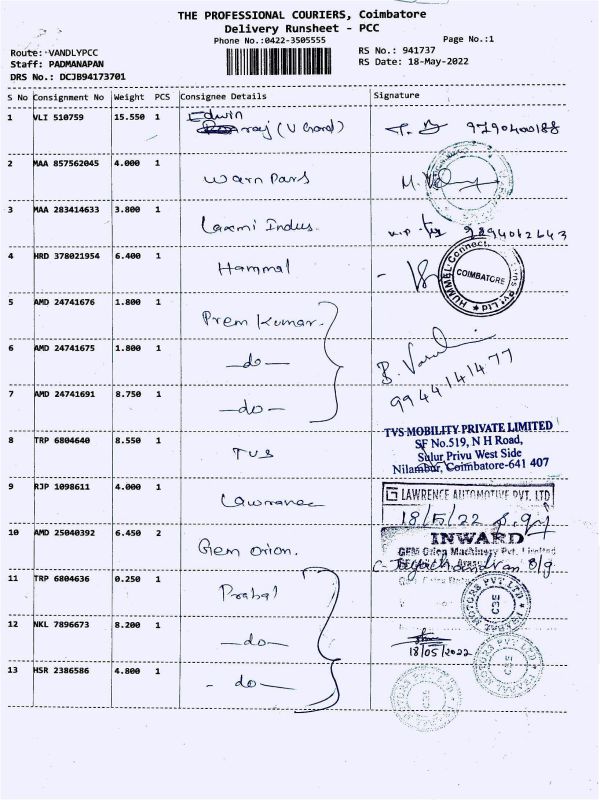 THE PROFESSIONAL COURIERS, Coimbatore
Delivery Runsheet - PCC
Phone No.:0422-3505555
Page No.:1
Route: VANDLYPCC
RS No.: 941737
Staff: PADMANAPAN
RS Date: 18-May-2022
DRS No.: DCJB94173701
S No Consignment No Weight PCS Consignee Details Signature
1 VLI 510759 15.550 1 Edwin
raj (V Chord) 9790400188
2 MAA 857562045 4.000 1 Warn Pars
3 MAA 283414633 3.800 1 Laxmi Indus. 9894062643
4 HRD 378021954 6.400 1 Hammal
HUMMEL Connect
COIMBATORE
Pvt Ltd
5 AMD 24741676 1.800 1 Prem Kumar.
6 AMD 24741675 1.800 1 -do-
7 AMD 24741691 8.750 1 -do-
9944141477
8 TRP 6804640 8.550 1 TVS
TVS MOBILITY PRIVATE LIMITED
SF No.519, N H Road,
Sulur Privu West Side
Nilambur, Coimbatore-641 407
9 RJP 1098611 4.000 1 Lawrance
LAWRENCE AUTOMOTIVE PVT. LTD
18/5/22
10 AMD 25040392 6.450 2 Gem orion.
INWARD
GEM Orion Machinery Pvt. Limited
11 TRP 6804636 0.250 1 Prabal
MOTORS PVT LTD
CBE
12 NKL 7896673 8.200 1 -do-
18/05/2022
13 HSR 2386586 4.800 1 - do-